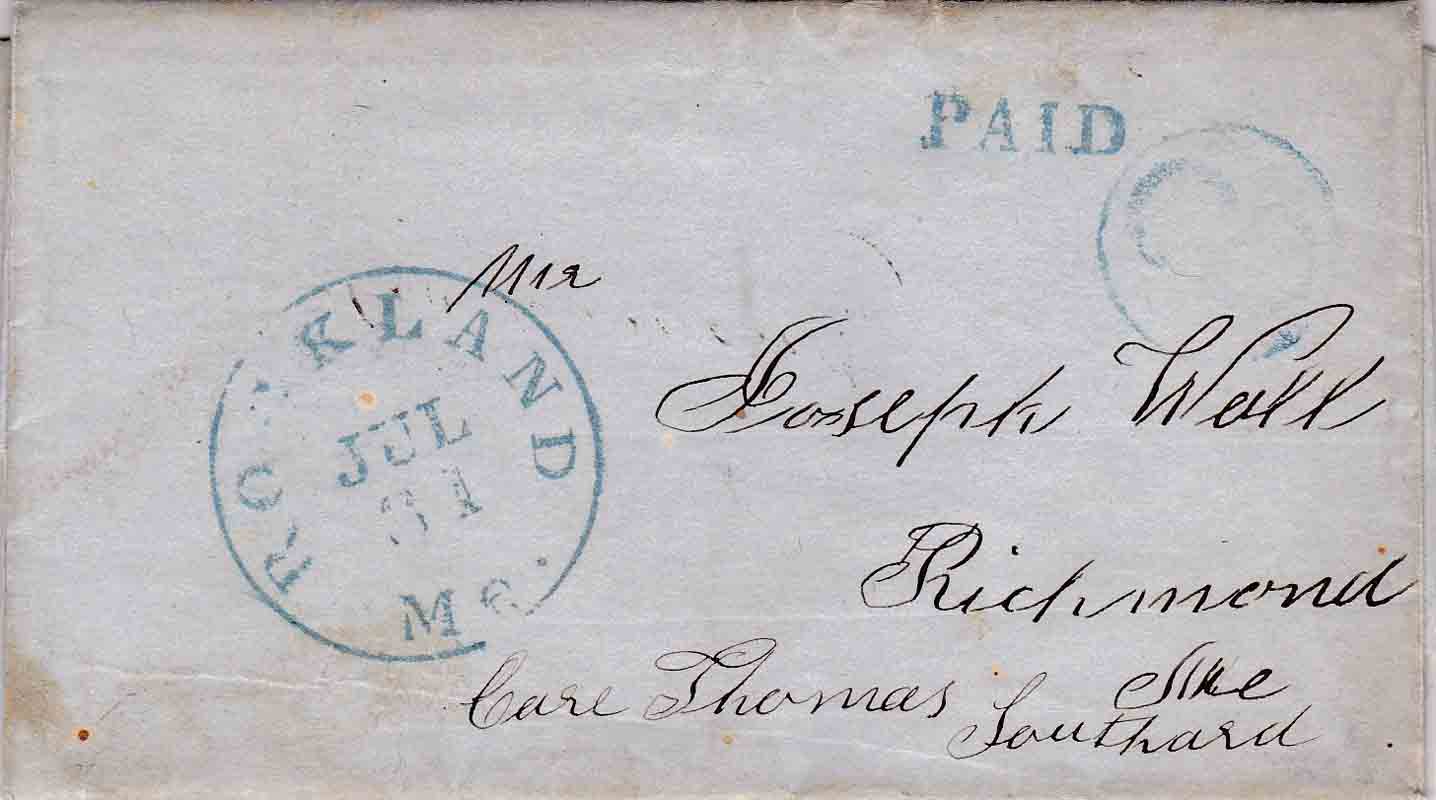 PAID
ROCKLAND
JUL
31
Me.
Mr
Joseph Wall
Richmond
Me
Care Thomas Southard